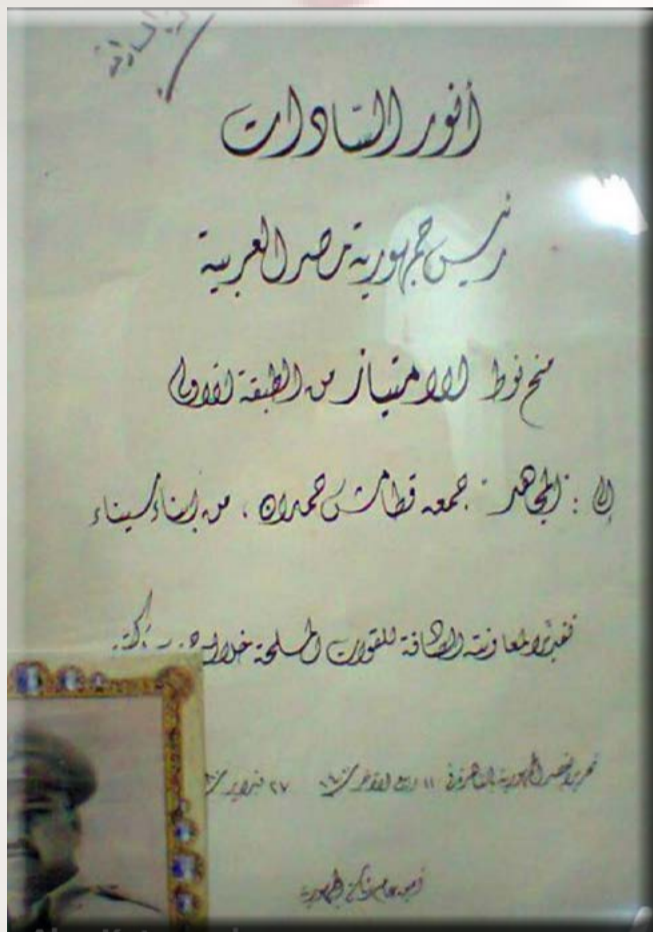 أنور السادات
رئيس جمهورية مصر العربية
منح نوط الامتياز من الطبقة الأولى
إلى : المجاهد جمعه قطامش حمدان ، من أبناء سيناء
تقديرًا لمعاونته الصادقة للقوات المسلحة خلال
تحريرًا بقصر الجمهورية بالقاهرة في ١١ ربيع الآخر ٢٧ فبراير
أمين عام رئاسة الجمهورية